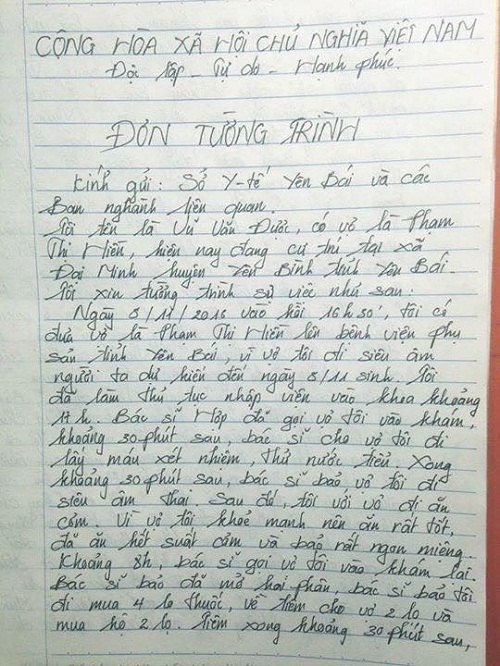 CỘNG HÒA XÃ HỘI CHỦ NGHĨA VIỆT NAM
Độc lập - Tự do - Hạnh phúc.
ĐƠN TƯỜNG TRÌNH
Kính gửi: Sở Y-tế Yên Bái và các
Ban nghành liên quan.
Tôi tên là Vũ Văn Được, có vợ là Phạm
Thị Hiền, hiện nay đang cư trú tại xã
Đại Minh huyện Yên Bình tỉnh Yên Bái.
Tôi xin tường trình sự việc như sau:
Ngày 8/11/2016 vào hồi 16h30', tôi có
đưa vợ là Phạm Thị Hiền lên bệnh viện phụ
sản tỉnh Yên Bái, vì vợ tôi đi siêu âm
người ta dự kiến đến ngày 8/11 sinh. Tôi
đã làm thủ tục nhập viện vào khoa khoảng
17h. Bác sĩ Hợp đã gọi vợ tôi vào khám,
khoảng 30 phút sau, bác sĩ cho vợ tôi đi
lấy máu xét nhiệm, thử nước tiểu xong
khoảng 30 phút sau, bác sĩ bảo vợ tôi đi
siêu âm thai sau đó, tôi với vợ đi ăn
cơm. Vì vợ tôi khoẻ mạnh nên ăn rất tốt,
đã ăn hết suất cơm và bảo rất ngon miệng.
Khoảng 8h, bác sĩ gọi vợ tôi vào khám lại.
Bác sĩ bảo đã mở hai phân, bác sĩ bảo tôi
đi mua 4 lọ thuốc, về tiêm cho vợ 2 lọ và
mua hộ 2 lọ. Tiêm xong khoảng 30 phút sau,